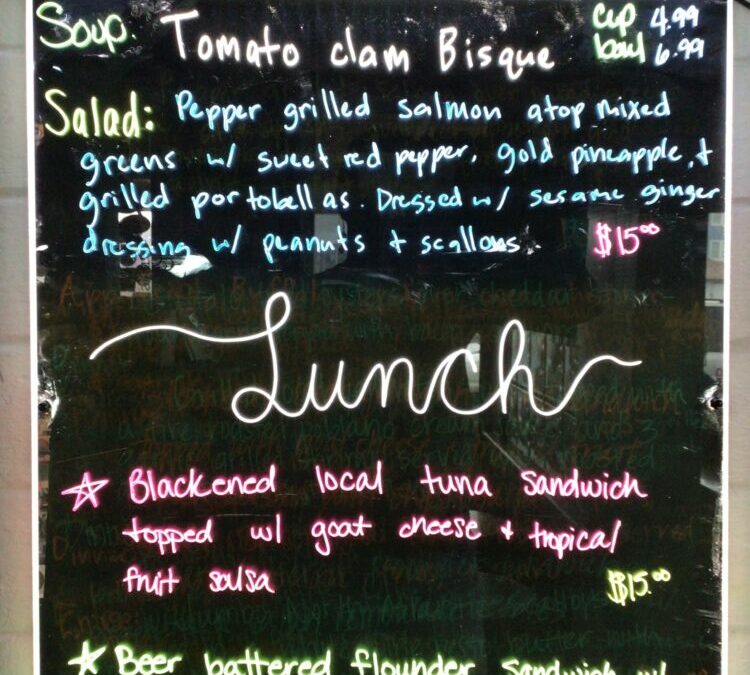 Soup. Tomato clam Bisque cup 4.99
bowl 6.99
Salad: Pepper grilled salmon atop mixed
greens w/ sweet red pepper, gold pineapple, +
grilled portobellas. Dressed w/ sesame ginger
dressing w/ peanuts + scallows. $15⁰⁰
Lunch
☆ Blackened local tuna sandwich
topped w/ goat cheese + tropical
fruit salsa $15.⁰⁰
☆ Beer battered flounder sandwich w/